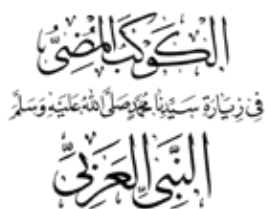 الكَوْكَبُ المُضِيُّ
فِي زِيَارَةِ سَيِّدِنَا مُحَمَّدٍ صَلَّى اللهُ عَلَيْهِ وَسَلَّمَ
النَّبِيِّ العَرَبِيِّ